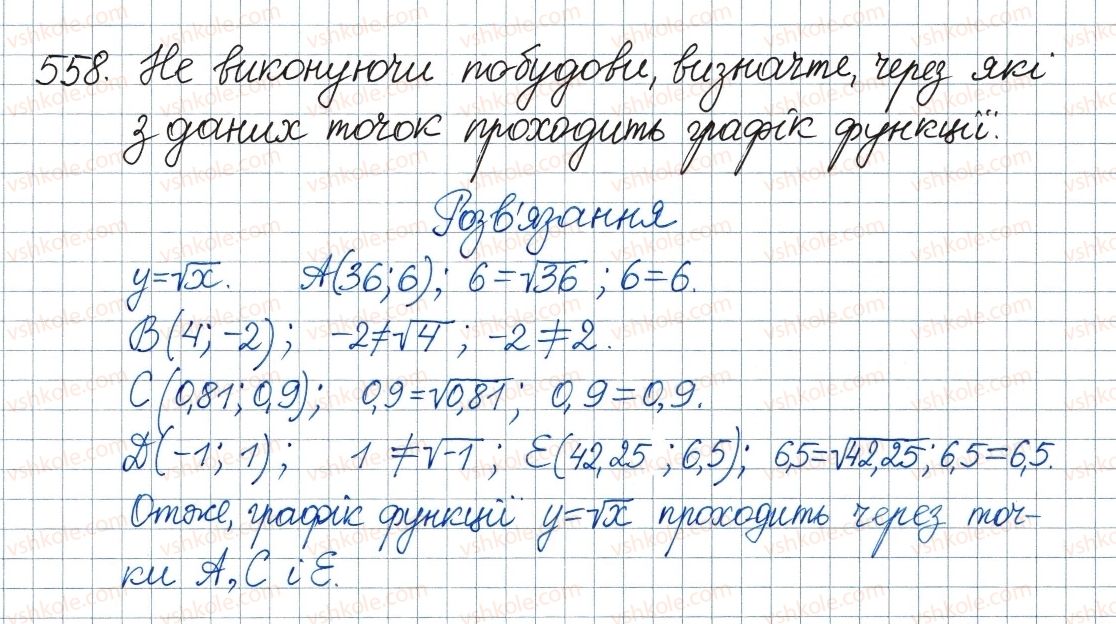 558. Не виконуючи побудови, визначте, через які
з даних точок проходить графік функції.
Розв'язання
y=√x. A(36; 6); 6=√36; 6=6.
B(4; -2); -2≠√4; -2≠2.
C(0,81; 0,9); 0,9=√0,81; 0,9=0,9.
D(-1; 1); 1≠√-1; E(42,25; 6,5); 6,5=√42,25; 6,5=6,5.
Отже, графік функції y=√x проходить через точ-
ки A, C і E.